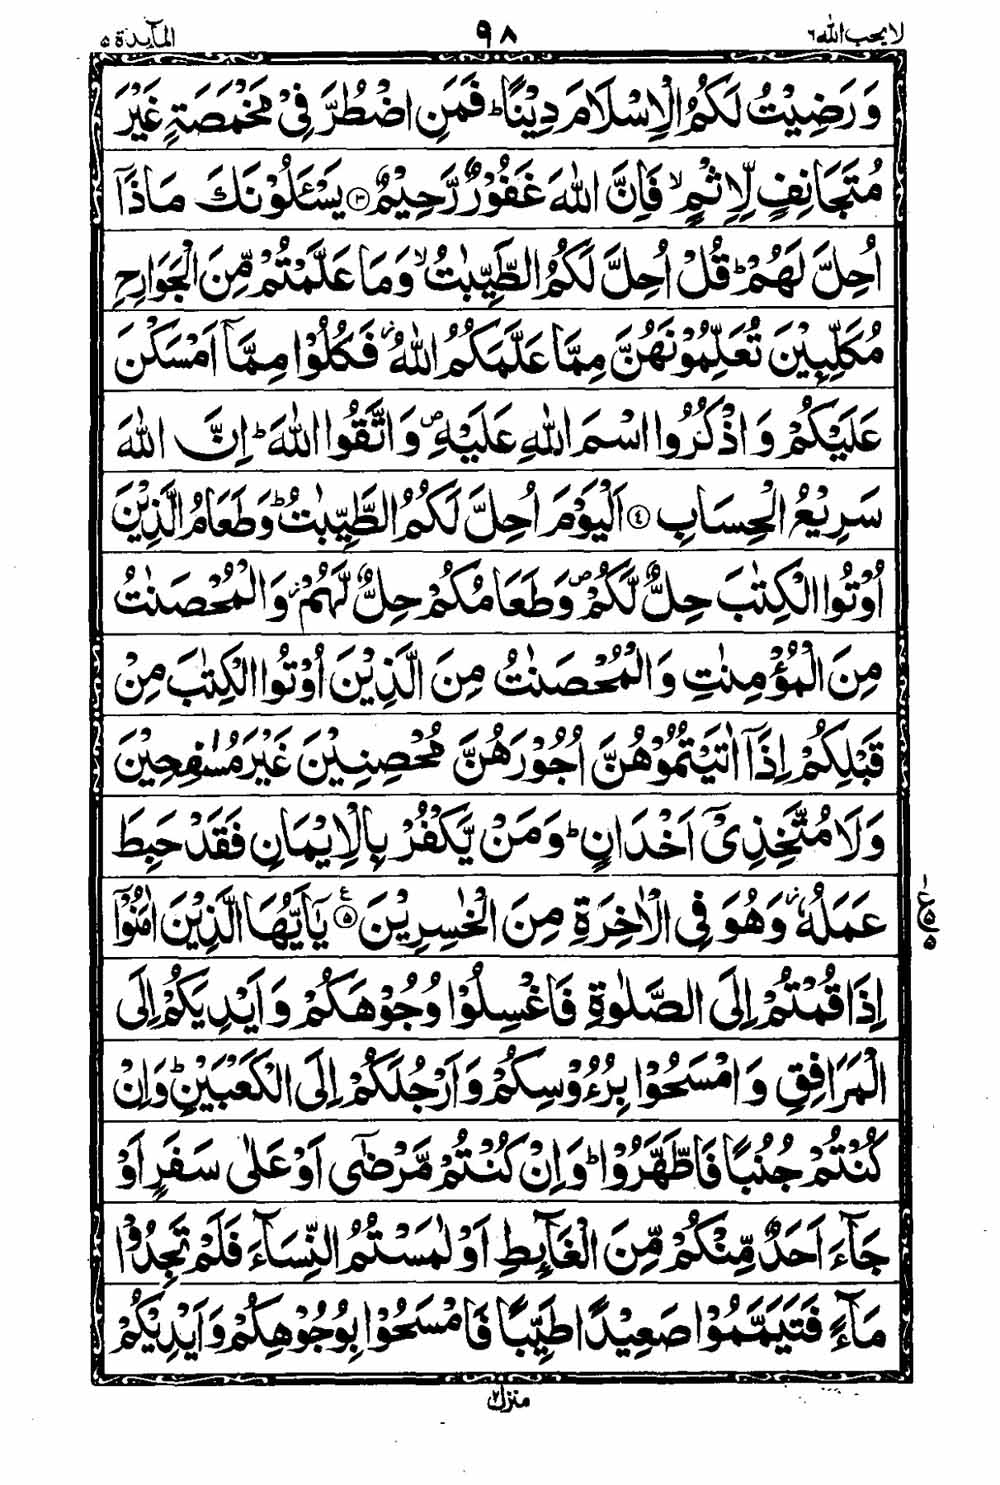 لا يحب الله ٦ ٩٨ المآيدة ٥
وَرَضِيْتُ لَكُمُ الْاِسْلَامَ دِيْنًا ؕ فَمَنِ اضْطُرَّ فِيْ مَخْمَصَةٍ غَيْرَ
مُتَجَانِفٍ لِّاِثْمٍ ۙ فَاِنَّ اللهَ غَفُوْرٌ رَّحِيْمٌ ﴿٣﴾ يَسْـَٔلُوْنَكَ مَاذَاۤ
اُحِلَّ لَهُمْ ؕ قُلْ اُحِلَّ لَكُمُ الطَّيِّبٰتُ ۙ وَمَا عَلَّمْتُمْ مِّنَ الْجَوَارِحِ
مُكَلِّبِيْنَ تُعَلِّمُوْنَهُنَّ مِمَّا عَلَّمَكُمُ اللهُ ؗ فَكُلُوْا مِمَّاۤ اَمْسَكْنَ
عَلَيْكُمْ وَاذْكُرُوا اسْمَ اللهِ عَلَيْهِ ۪ وَاتَّقُوا اللهَ ؕ اِنَّ اللهَ
سَرِيْعُ الْحِسَابِ ﴿٤﴾ اَلْيَوْمَ اُحِلَّ لَكُمُ الطَّيِّبٰتُ ؕ وَطَعَامُ الَّذِيْنَ
اُوْتُوا الْكِتٰبَ حِلٌّ لَّكُمْ ۪ وَطَعَامُكُمْ حِلٌّ لَّهُمْ ؗ وَالْمُحْصَنٰتُ
مِنَ الْمُؤْمِنٰتِ وَالْمُحْصَنٰتُ مِنَ الَّذِيْنَ اُوْتُوا الْكِتٰبَ مِنْ
قَبْلِكُمْ اِذَاۤ اٰتَيْتُمُوْهُنَّ اُجُوْرَهُنَّ مُحْصِنِيْنَ غَيْرَ مُسٰفِحِيْنَ
وَلَا مُتَّخِذِيْۤ اَخْدَانٍ ؕ وَمَنْ يَّكْفُرْ بِالْاِيْمَانِ فَقَدْ حَبِطَ
عَمَلُهٗ ؗ وَهُوَ فِي الْاٰخِرَةِ مِنَ الْخٰسِرِيْنَ ﴿٥﴾ۧ يٰۤاَيُّهَا الَّذِيْنَ اٰمَنُوْۤا
اِذَا قُمْتُمْ اِلَى الصَّلٰوةِ فَاغْسِلُوْا وُجُوْهَكُمْ وَاَيْدِيَكُمْ اِلَى
الْمَرَافِقِ وَامْسَحُوْا بِرُءُوْسِكُمْ وَاَرْجُلَكُمْ اِلَى الْكَعْبَيْنِ ؕ وَاِنْ
كُنْتُمْ جُنُبًا فَاطَّهَّرُوْا ؕ وَاِنْ كُنْتُمْ مَّرْضٰۤى اَوْ عَلٰى سَفَرٍ اَوْ
جَآءَ اَحَدٌ مِّنْكُمْ مِّنَ الْغَآىِٕطِ اَوْ لٰمَسْتُمُ النِّسَآءَ فَلَمْ تَجِدُوْا
مَآءً فَتَيَمَّمُوْا صَعِيْدًا طَيِّبًا فَامْسَحُوْا بِوُجُوْهِكُمْ وَاَيْدِيْكُمْ
منزل ٢